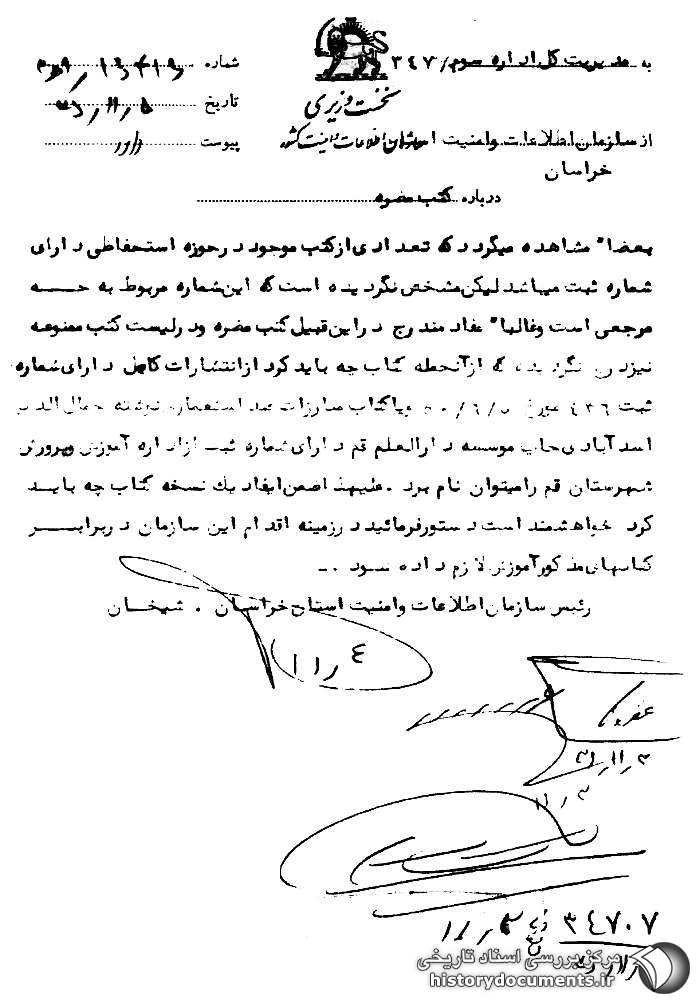 به مدیریت کل اداره سوم / ۳۴۷
شماره
نخست وزیری
تاریخ ۵ر۱۱ر
از سازمان اطلاعات و امنیت سازمان اطلاعات و امنیت کشور
پیوست دارد
خراسان
درباره کتب مضره
بعضا" مشاهده میگردد که تعدادی از کتب موجود در حوزه استحفاظی دارای
شماره ثبت میباشد لیکن مشخص نگردیده است که این شماره مربوط به چـــه
مرجعی است و غالبا" مفاد مندرج در این قبیل کتب مضره و در لیست کتب ممنوعه
نیز درج نگردیده که از آنجمله کتاب چه باید کرد از انتشارات کامل دارای شماره
ثبت ۴۳۶ مورخ و یا کتاب مبارزات ضد استعماری نوشته جمال الدین
اسدآبادی چاپ موسسه دارالعلم قم دارای شماره ثبت از اداره آموزش وپرورش
شهرستان قم را میتوان نام برد . علیهذا ضمن ایفاد یك نسخه کتاب چه بایـــد
کرد خواهشمند است دستور فرمائید در زمینه اقدام این سازمان در برابـــر
کتابهای مذکور آموزش لازم داده شود . ـ
رئیس سازمان اطلاعات و امنیت استان خراسـان . شیخــان
۴ر۱۱
۳ر۱۱
۳ر۱۱
۳۴۷۰۷
مرکز بررسی اسناد تاریخی
historydocuments.ir